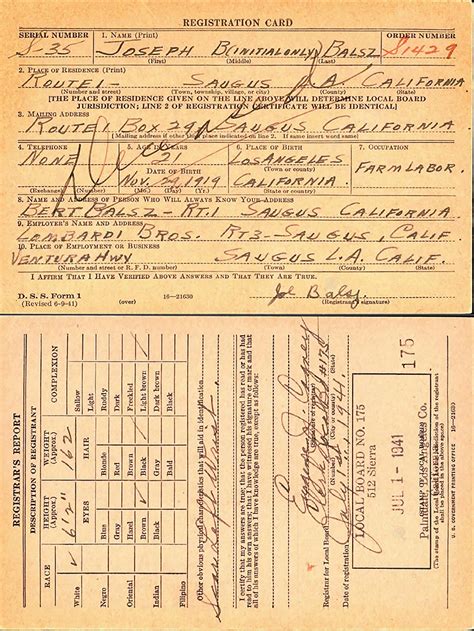 REGISTRATION CARD
SERIAL NUMBER 1. NAME (Print) ORDER NUMBER
S-35 JOSEPH B(INITIAL ONLY) BALSZ S1429
(First) (Middle) (Last)
2. PLACE OF RESIDENCE (Print)
ROUTE 1 SAUGUS L.A. CALIFORNIA
(Number and street) (Town, township, village, or city) (County) (State)
[THE PLACE OF RESIDENCE GIVEN ON THE LINE ABOVE WILL DETERMINE LOCAL BOARD
JURISDICTION; LINE 2 OF REGISTRATION CERTIFICATE WILL BE IDENTICAL]
3. MAILING ADDRESS
ROUTE 1 BOX SAUGUS CALIFORNIA
[Mailing address if other than place indicated on line 2. If same insert word same]
4. TELEPHONE 5. AGE IN YEARS 6. PLACE OF BIRTH 7. OCCUPATION
NONE 21 LOS ANGELES FARM LABOR.
DATE OF BIRTH (Town or county)
NOV. 1919 CALIFORNIA
(Exchange) (Number) (Mo.) (Day) (Yr.) (State or country)
8. NAME AND ADDRESS OF PERSON WHO WILL ALWAYS KNOW YOUR ADDRESS
BERT BALSZ - RT.1 SAUGUS CALIFORNIA
9. EMPLOYER'S NAME AND ADDRESS
LOMBARDI BROS. RT3 - SAUGUS, CALIF.
10. PLACE OF EMPLOYMENT OR BUSINESS
VENTURA HWY SAUGUS L.A. CALIF.
(Number and street or R. F. D. number) (Town) (County) (State)
I AFFIRM THAT I HAVE VERIFIED ABOVE ANSWERS AND THAT THEY ARE TRUE.
D. S. S. Form 1
(Revised 6-9-41) (over) 16—21630 (Registrant's signature)
Joe Balsz
REGISTRAR'S REPORT
DESCRIPTION OF REGISTRANT
RACE
White
Negro
Oriental
Indian
Filipino
HEIGHT (Approx.)
6'2"
WEIGHT (Approx.)
162
EYES
Blue
Gray
Hazel
Brown
Black
HAIR
Blonde
Red
Brown
Black
Gray
Bald
COMPLEXION
Sallow
Light
Ruddy
Dark
Freckled
Light brown
Dark brown
Black
Other obvious physical characteristics that will aid in identification
I certify that my answers are true; that the person registered has read or has had
read to him his own answers; that I have witnessed his signature or mark and that
all of his answers of which I have knowledge are true, except as follows:
(Signature of registrar)
Registrar for Local Board
(Number) (City or county) (State)
Date of registration July 1st 1941.
LOCAL BOARD NO. 175
512 Sierra
JUL 1 - 1941
175
(The stamp of the Local Board having jurisdiction of the registrant
shall be placed in the above space)
U. S. GOVERNMENT PRINTING OFFICE 16—21630